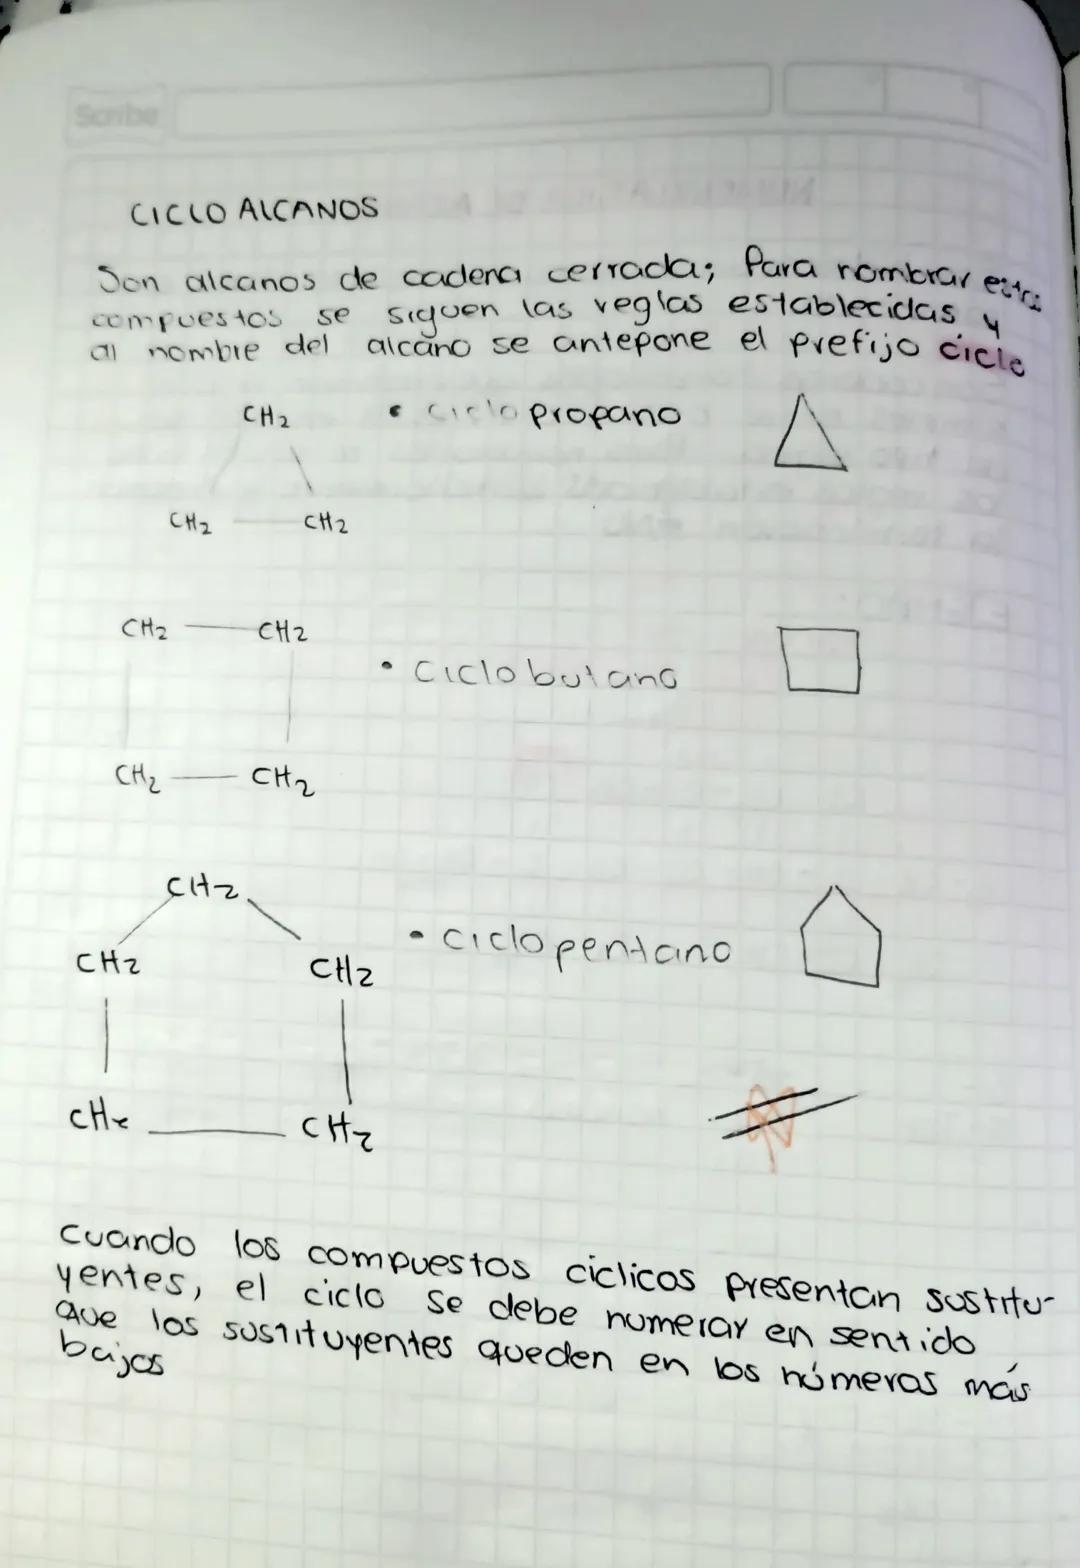 Scribe
CICLO ALCANOS
Son alcanos de cadena cerrada; Para nombrar estos
compuestos se siguen las reglas establecidas y
al nombre del alcano se antepone el prefijo ciclo
CH2
• Ciclo propano
CH2 CH2
CH2 CH2
• Ciclo butano
CH2 CH2
CH2
• Ciclo pentano
CH2 CH2
CH2 CH2
Cuando los compuestos ciclicos presentan sustitu-
yentes, el ciclo se debe numerar en sentido
que los sustituyentes queden en los números más
bajos